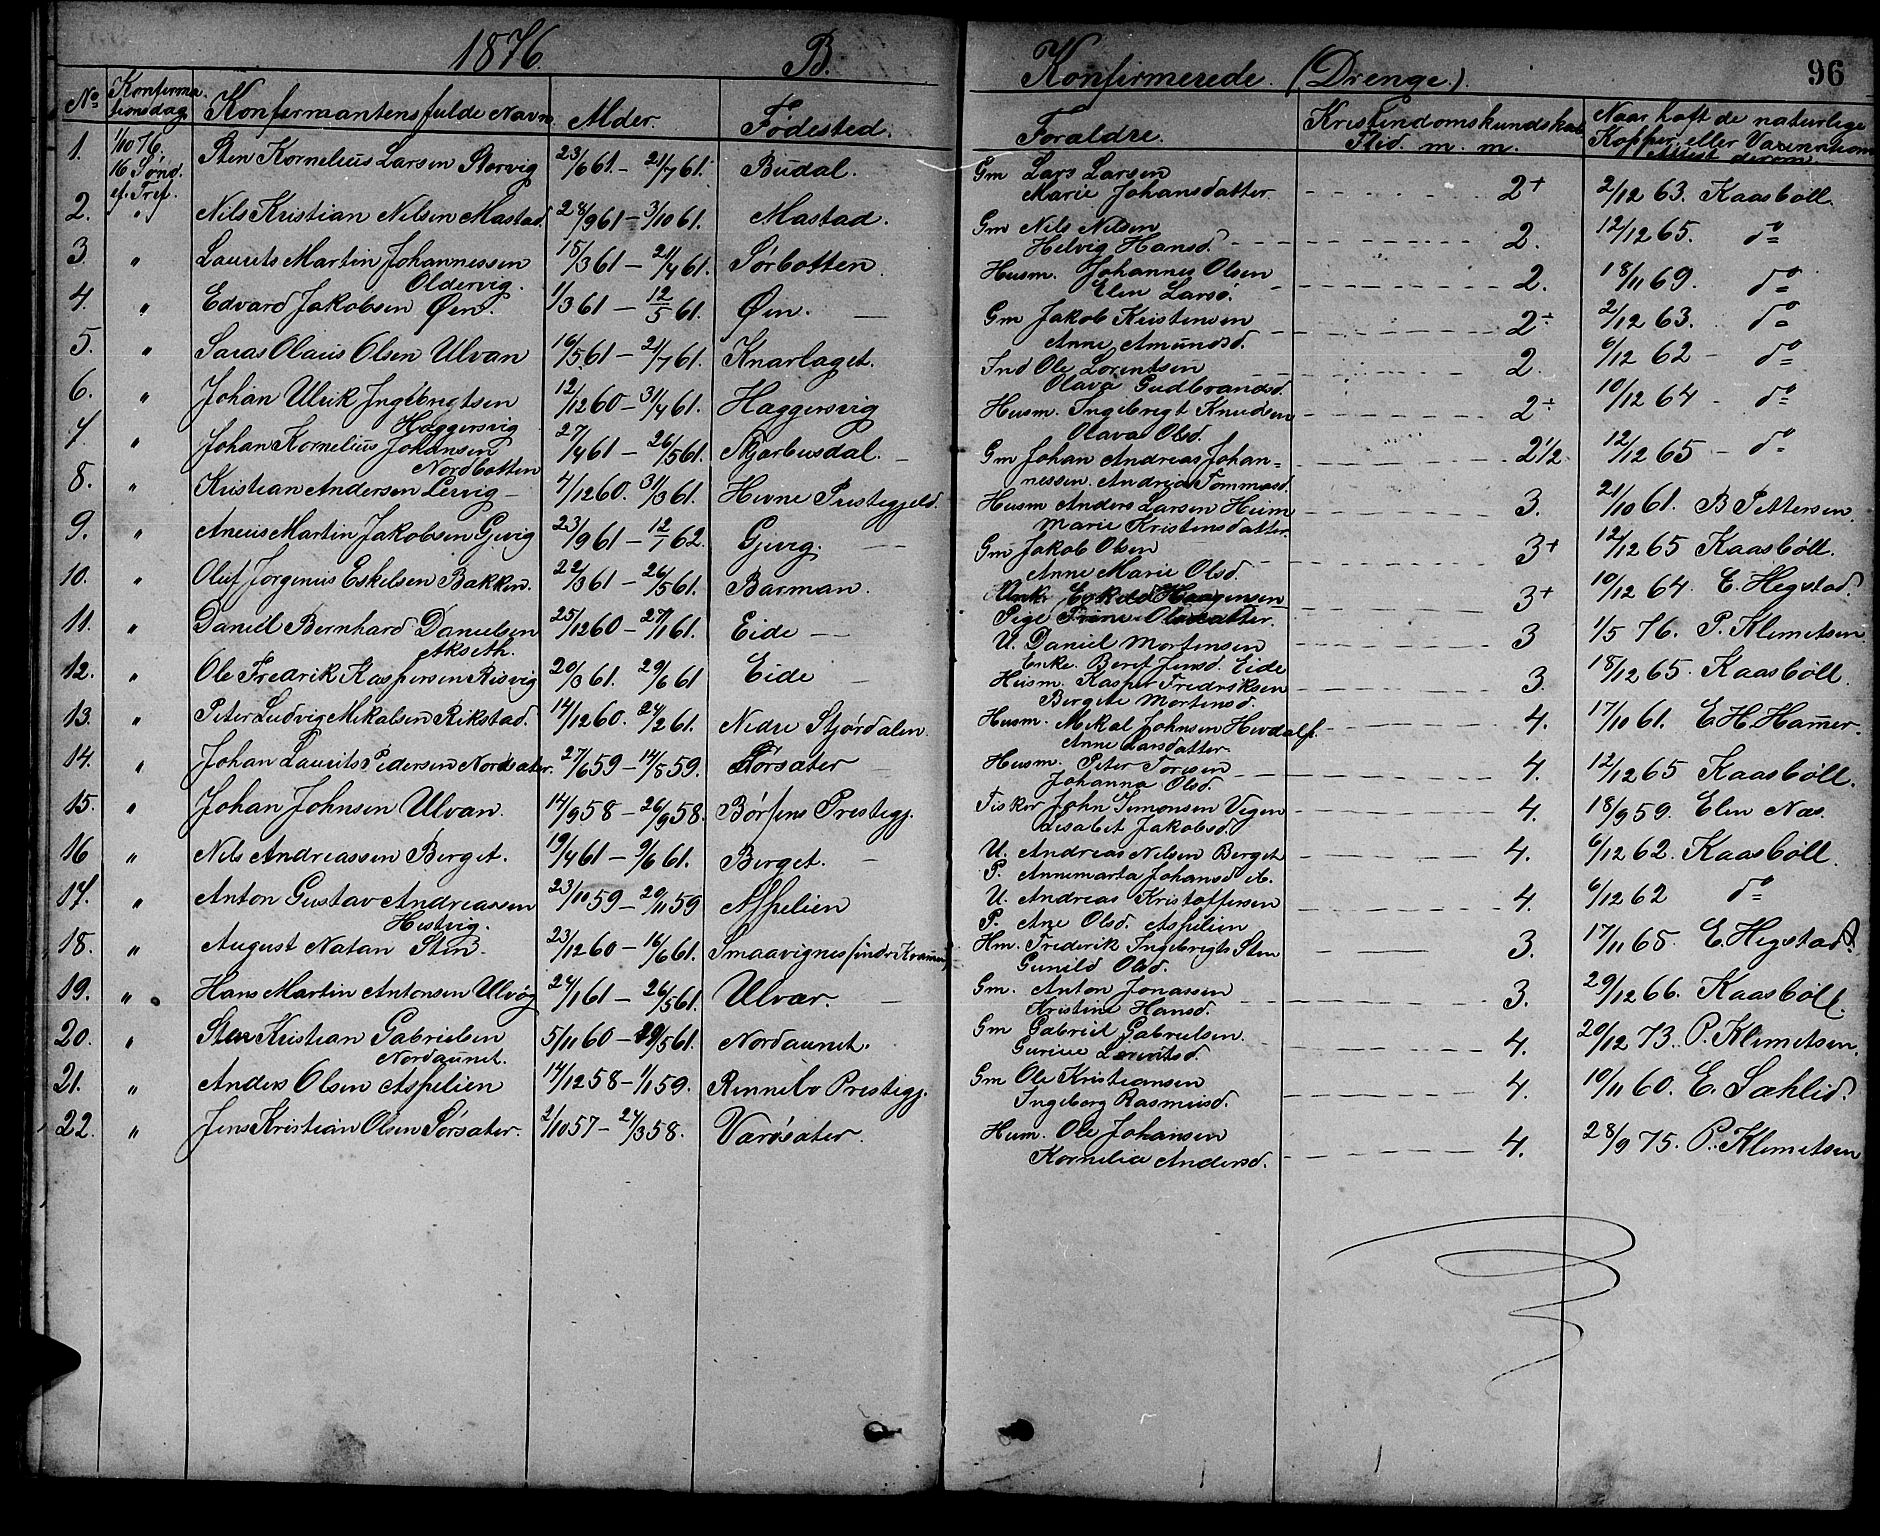 1876. B. Konfirmerede (Drenge.) 96
No Konfirma- tionsdag. Konfirmantens fulde Navn. Alder. Fødested. Forældre. Kristendomskundskab Flid. m. m. Naar haft de naturlige Kopper, eller Vaxinations Attest derom
1. 1/10 76. 16 Sønd. ef. Tref. Sten Kornelius Larsen Storvig 23/6 61. - 21/7 61. Budal. Gm Lars Larsen
Marie Johansdatter 2+ 2/12 63. Kaasböll.
2. " Nils Kristian Nilsen Mastad. 28/9 61 - 3/10 61. Mastad. Gm Nils Nilsen
Helvig Hansd. 2. 12/12 65. do
3. " Laurits Martin Johannessen
Oldervig. 15/3 61 - 21/4 61. Sørbotten Husm. Johannes Olsen
Elen Larsd. 2. 18/11 69. do
4. " Edvard Jakobsen Øen. 1/3 61 - 12/5 61. Øen. Gm Jakob Kristensen
Anne Amundsd. 2÷ 2/12 63. do
5. " Saras Olaus Olsen Ulvan 16/5 61 - 21/7 61. Knarlaget. Ind Ole Lorentsen
Olava Gudbrandsd. 2. 6/12 62 - do
6. " Johan Ulrik Ingebrigtsen
Haggersvig 12/12 60 - 31/4 61. Haggersvig Husm. Ingebrigt Knudsen
Olava Olsd. 2÷ 10/12 64 - do
7. " Johan Kornelius Johansen
Nordbotten 27/4 61 - 26/5 61. Skjarbusdal. Gm Johan Andreas Johan=
nessen. Andrea Tommasd. 2 1/2 12/12 65 - do
8. " Kristian Andersen Lervig 4/12 60. 31/3 61. Hevne Prestegjeld. Husm Anders Larsen Heim
Marie Kristensdatter. 3. 21/10 61. B Pettersen.
9. " Aneus Martin Jakobsen Gjevig 23/9 61 - 12/1 62. Gjevig. Gm Jakob Olsen
Anne Marie Olsd. 3+ 12/12 65 Kaasböll.
10. " Oluf Jørgenius Eskelsen Bakken. 22/3 61 - 26/5 61. Barman. Haagensen
Pige Trine Olsdatter. 3+ 10/12 64. E. Hegstad.
11. " Daniel Bernhard Danielsen
Akseth. 25/12 60 - 27/1 61. Eide U. Daniel Mortensen
Enke. Beret Jensd. Eide 3 1/5 76. P. Klemetsen
12. " Ole Fredrik Kaspersen Risvig 20/3 61. 29/6 61 Eide Husm. Kasper Fredriksen
Bergete Mortensd. 3. 18/12 65. Kaasböll.
13. " Peter Ludvig Mikalsen Rikstad. 14/12 60. 24/2 61. Nedre Stjørdalen Husm. Mikal Johnsen
Anne Larsdatter 4. 17/10 61. E. H. Hammer.
14. " Johan Laurits Pedersen Nordsater. 27/6 59 - 14/8 59. Sørsater Husm. Peter Toresen
Johanna Olsd. 4. 12/12 65 Kaasböll.
15. " Johan Johnsen Ulvan. 14/9 58 - 26/9 58. Børsens Prestegj. Fisker John Simonsen Vigen
Lisabet Jakobsd. 4. 18/9 59. Elen Næs.
16 " Nils Andreassen Berget. 19/4 61 - 9/6 61. Berget. U. Andreas Nilsen Berget
P. Annemarta Johansd 4. 6/12 62. Kaasböll.
17. " Anton Gustav Andreassen
Hestvig. 23/10 59 - 20/11 59 Aspelien U. Andreas Kristoffersen
P. Ane Olsd. Aspelien 4. 6/12 62 do
18. " August Natan Sten. 23/12 60 - 16/6 61. Smaavignes Hm. Frederik Ingebrigts Sten
Gunild Olsd. 3. 17/11 65. E. Hegstad.
19. " Hans Martin Antonsen Ulvøy 24/1 61 - 26/5 61. Ulvær Gm. Anton Jonassen
Kristine Hansd. 3. 29/12 66. Kaasböll.
20. " Sten Kristian Gabrielsen
Nordaunet. 5/11 60 - 29/5 61. Nordaunet. Gm Gabriel Gabrielsen.
Gurine Lorntsd. 4. 20/12 73. P. Klemetsen.
21. " Anders Olsen Aspelien 14/12 58 - 1/1 59. Rennebo Prestegj. Gm Ole Kristiansen
Ingeborg Rasmusd. 4. 10/11 60. E. Sæhlid.
22. " Jens Kristian Olsen Sørsater. 2/10 57 - 24/3 58. Værøsater. Husm. Ole Johansen
Kornelia Andersd. 4. 28/9 75. P. Klemetsen